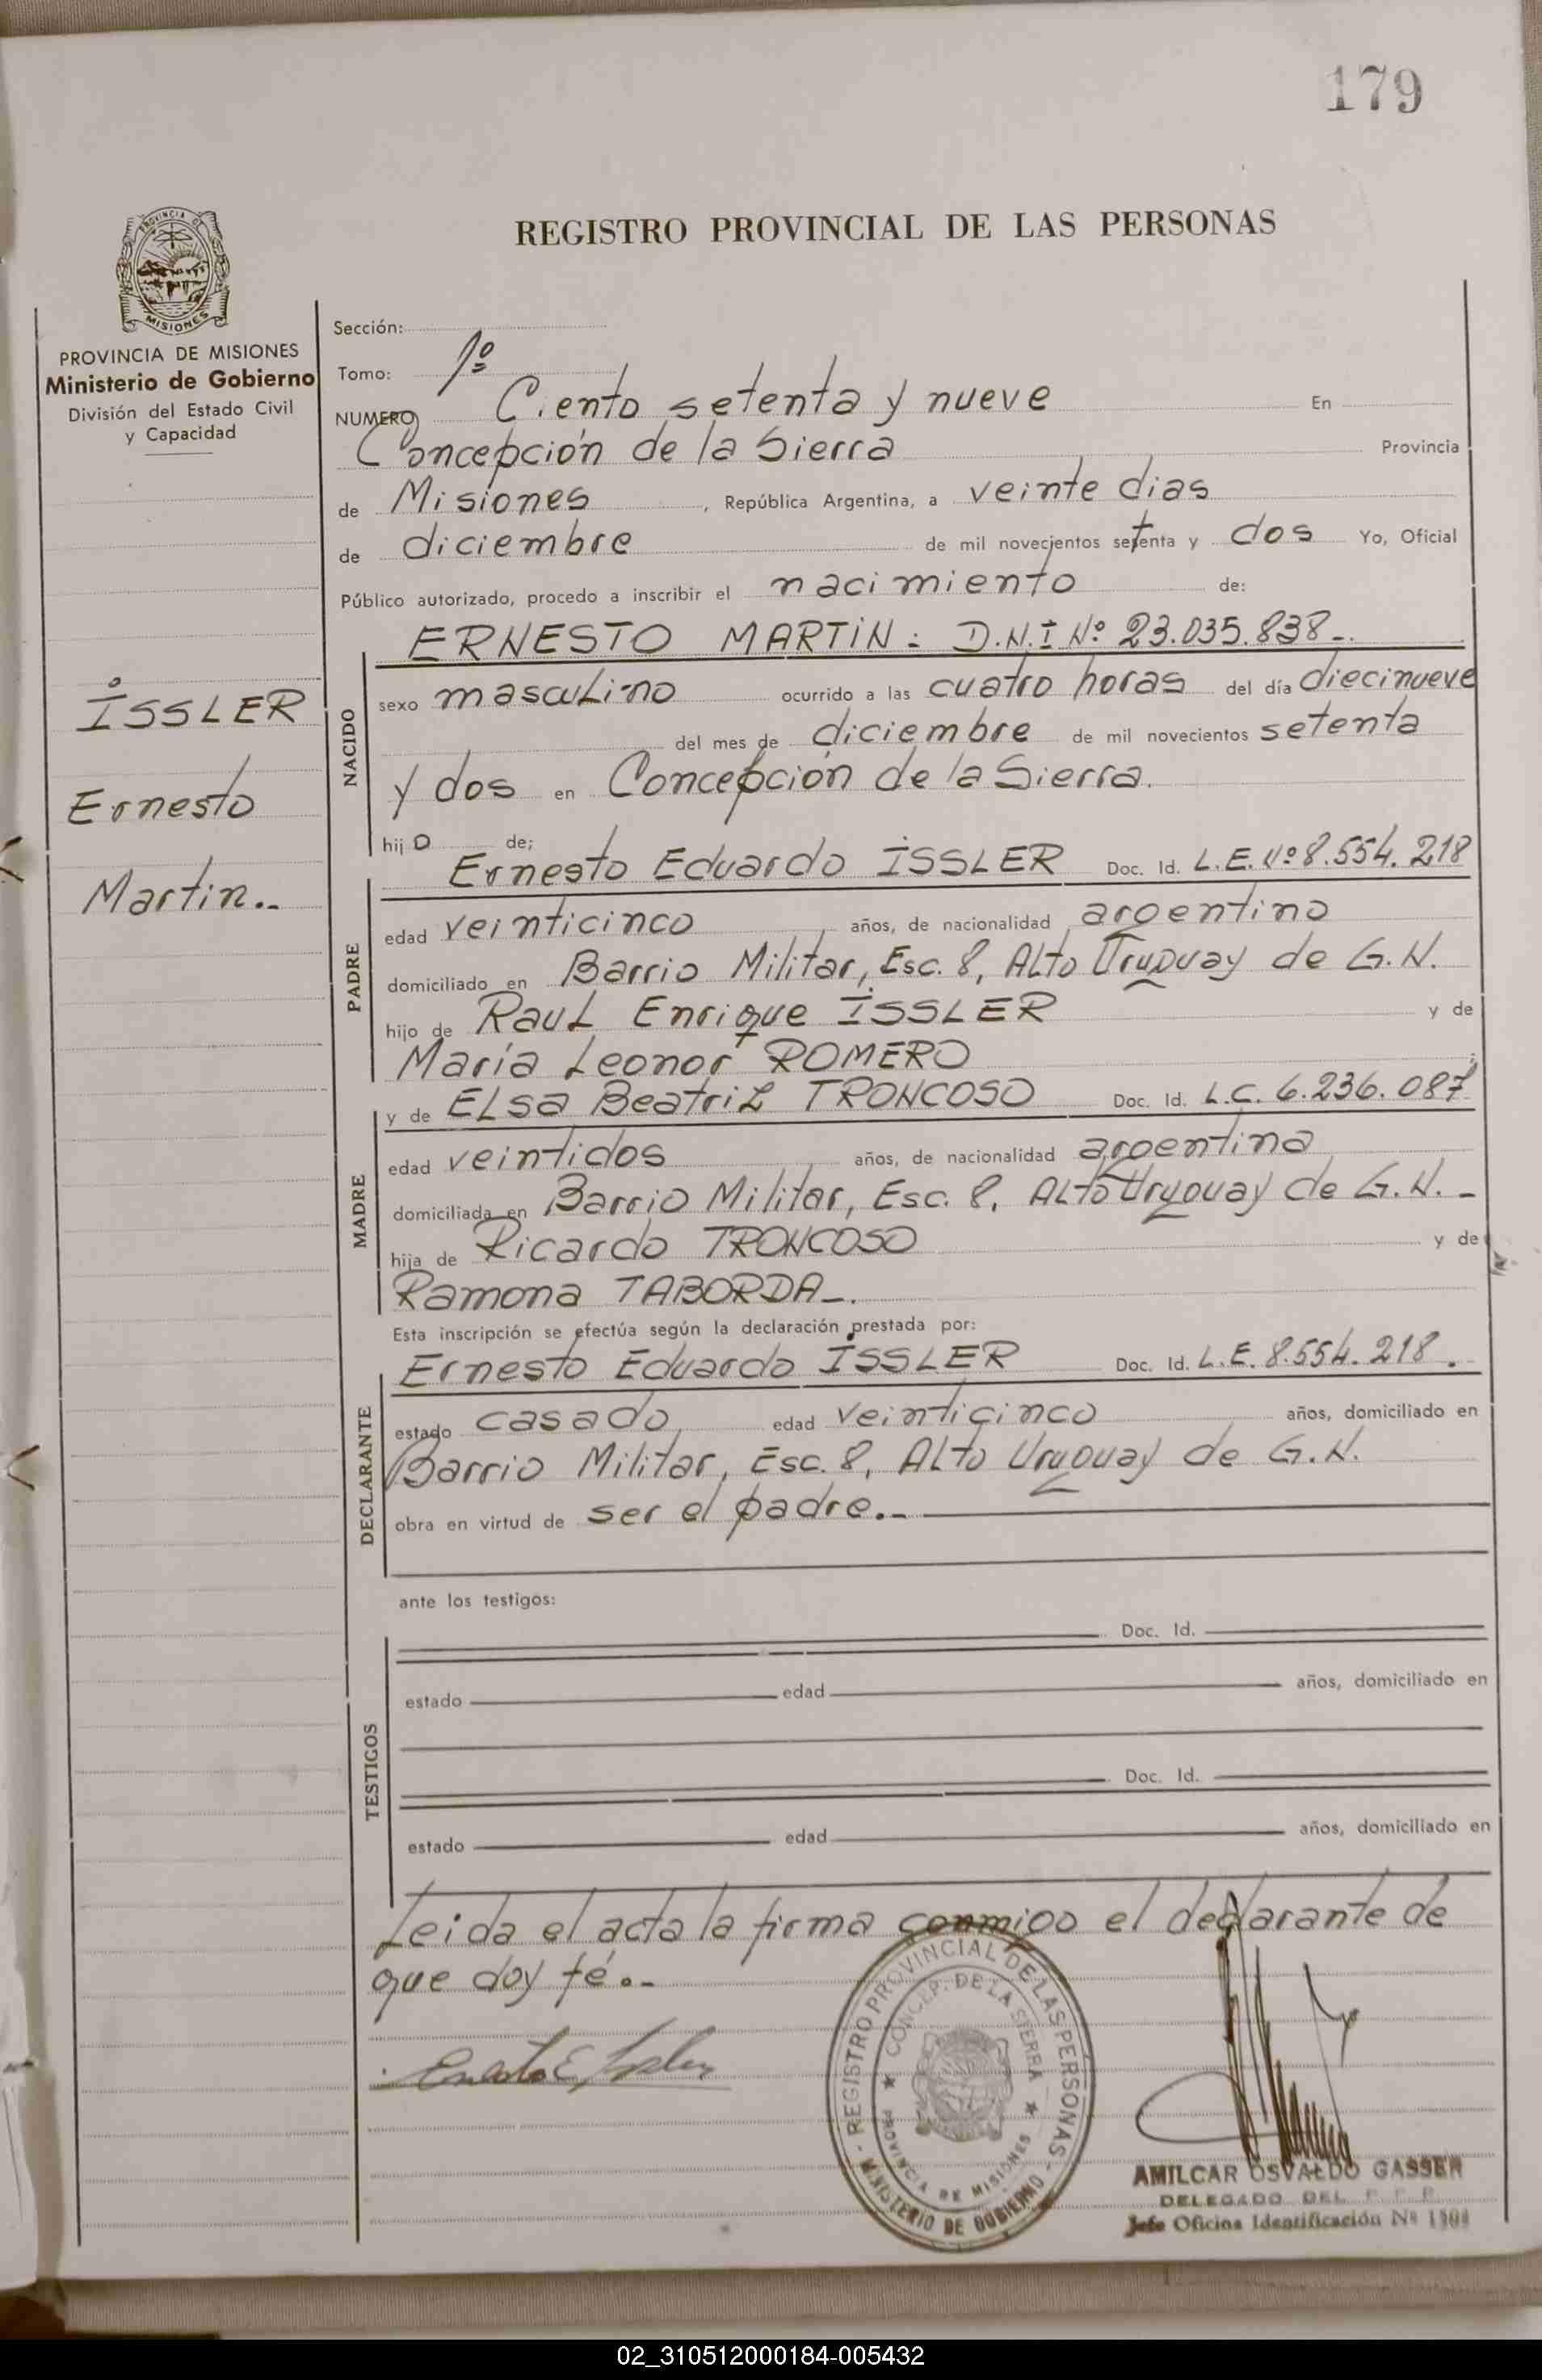 179
REGISTRO PROVINCIAL DE LAS PERSONAS
MISIONES
PROVINCIA DE MISIONES
Ministerio de Gobierno
División del Estado Civil
y Capacidad
ISSLER
Ernesto
Martin..
Sección:
Tomo: 1º
NUMERO Ciento setenta y nueve En
Concepción de la Sierra Provincia
de Misiones, República Argentina, a veinte dias
de diciembre de mil novecientos setenta y dos Yo, Oficial
Público autorizado, procedo a inscribir el nacimiento de:
ERNESTO MARTIN: D.N.I Nº 23.035.838-.
NACIDO
sexo masculino ocurrido a las cuatro horas del día diecinueve
del mes de diciembre de mil novecientos setenta
y dos en Concepción de la Sierra.
hijo de;
Ernesto Eduardo ISSLER Doc. Id. L.E. Nº 8.554.218
PADRE
edad veinticinco años, de nacionalidad argentino
domiciliado en Barrio Militar, Esc. 8, Alto Uruguay de G.N.
hijo de Raul Enrique ISSLER y de
María Leonor ROMERO ;
y de Elsa Beatriz TRONCOSO Doc. Id. L.C. 6.236.087
MADRE
edad veintidos años, de nacionalidad argentina
domiciliada en Barrio Militar, Esc. 8, Alto Uruguay de G.N. -
hija de Ricardo TRONCOSO y de
Ramona TABORDA-.
Esta inscripción se efectúa según la declaración prestada por:
Ernesto Eduardo ISSLER Doc. Id. L.E. 8.554.218.
DECLARANTE
estado casado edad veinticinco años, domiciliado en
Barrio Militar, Esc. 8, Alto Uruguay de G.N.
obra en virtud de ser el padre.-
ante los testigos:
TESTIGOS
Doc. Id.
estado edad años, domiciliado en
Doc. Id.
estado edad años, domiciliado en
Leida el acta la firma conmigo el declarante de
que doy fé.-
REGISTRO PROVINCIAL DE LAS PERSONAS - MINISTERIO DE GOBIERNO -
CONCEP. DE LA SIERRA ★ PROVINCIA DE MISIONES ★
AMILCAR OSVALDO GASSER
DELEGADO DEL
Jefe Oficina Identificación Nº
02_310512000184-005432